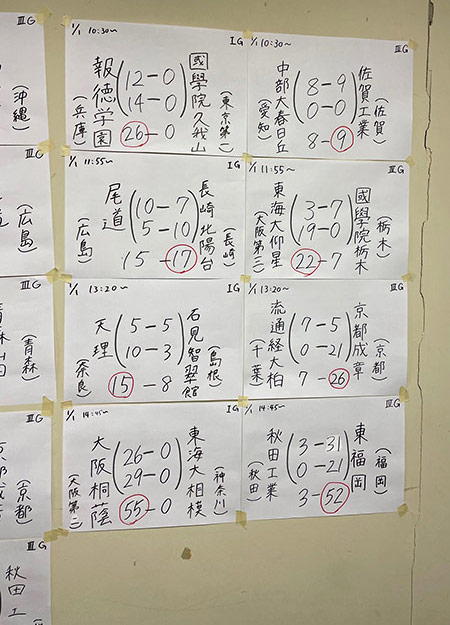 ⅢG
（沖縄）
ⅢG
（広島）
ⅢG
（青森）
ⅢG
（京都）
ⅢG
秋田工
1/1 10:30〜 ⅠG
報徳学園
（兵庫）
12-0
14-0
26-0
國學院久我山
（東京第一）
1/1 11:55〜 ⅠG
尾道
（広島）
10-7
5-10
15-17
長崎北陽台
（長崎）
1/1 13:20〜 ⅠG
天理
（奈良）
5-5
10-3
15-8
石見智翠館
（島根）
1/1 14:45〜 ⅠG
大阪桐蔭
（大阪第二）
26-0
29-0
55-0
東海大相模
（神奈川）
1/1 10:30〜 ⅢG
中部大春日丘
（愛知）
8-9
0-0
8-9
佐賀工業
（佐賀）
1/1 11:55〜 ⅢG
東海大仰星
（大阪第三）
3-7
19-0
22-7
國學院栃木
（栃木）
1/1 13:20〜 ⅢG
流通経大柏
（千葉）
7-5
0-21
7-26
京都成章
（京都）
1/1 14:45〜 ⅢG
秋田工業
（秋田）
3-31
0-21
3-52
東福岡
（福岡）